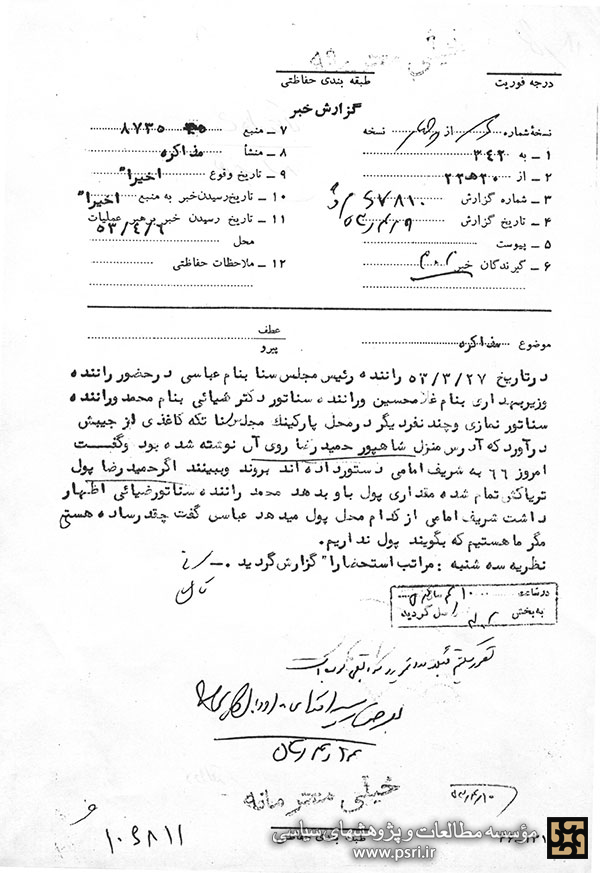 خیلی محرمانه
درجه فوریت
طبقه بندی حفاظتی
گزارش خبر
نسخهٔ شماره از نسخه
۱ ـ به ۳۴۲
۲ ـ از ۲۰ ه ۲۲
۳ ـ شماره گزارش
۴ ـ تاریخ گزارش
۵ ـ پیوست
۶ ـ گیرندگان خبر
۷ ـ منبع ۸۷۳۵
۸ ـ منشأ مذاکره
۹ ـ تاریخ وقوع اخیرا"
۱۰ ـ تاریخ رسیدن خبر به منبع اخیرا"
۱۱ ـ تاریخ رسیدن خبر برهبر عملیات ۵۳/۴/۶
محل
۱۲ ـ ملاحظات حفاظتی
موضوع مذاکره
عطف
پیرو
درتاریخ ۵۳/۳/۲۷ راننده رئیس مجلس سنا بنام عباسی درحضور راننده
وزیربهداری بنام غلامحسین وراننده سناتور دکتر ضیائی بنام محمد وراننده
سناتور نمازی وچند نفردیگر درمحل پارکینك مجلس سنا تکه کاغذی از جیبش
درآورد که آدرس منزل شاهپور حمید رضا روی آن نوشته شده بود وگفت
امروز ۶۶ به شریف امامی دستورداده اند بروند وببینند اگرحمید رضا پول
تریاکش تمام شده مقداری پول باو بدهد محمد راننده سناتورضیائی اظهار
داشت شریف امامی از کدام محل پول میدهد عباسی گفت چقدرساده هستیم
مگر ما هستیم که بگویند پول نداریم.
نظریه سه شنبه : مراتب استحضارا" گزارش گردید .ـ
در ساعت
به بخش گردید
خیلی محرمانه
۱۰۶۸۱۱
طبقه بندی حفاظتی
مؤسسه مطالعات و پژوهشهای سیاسی
www.psri.ir